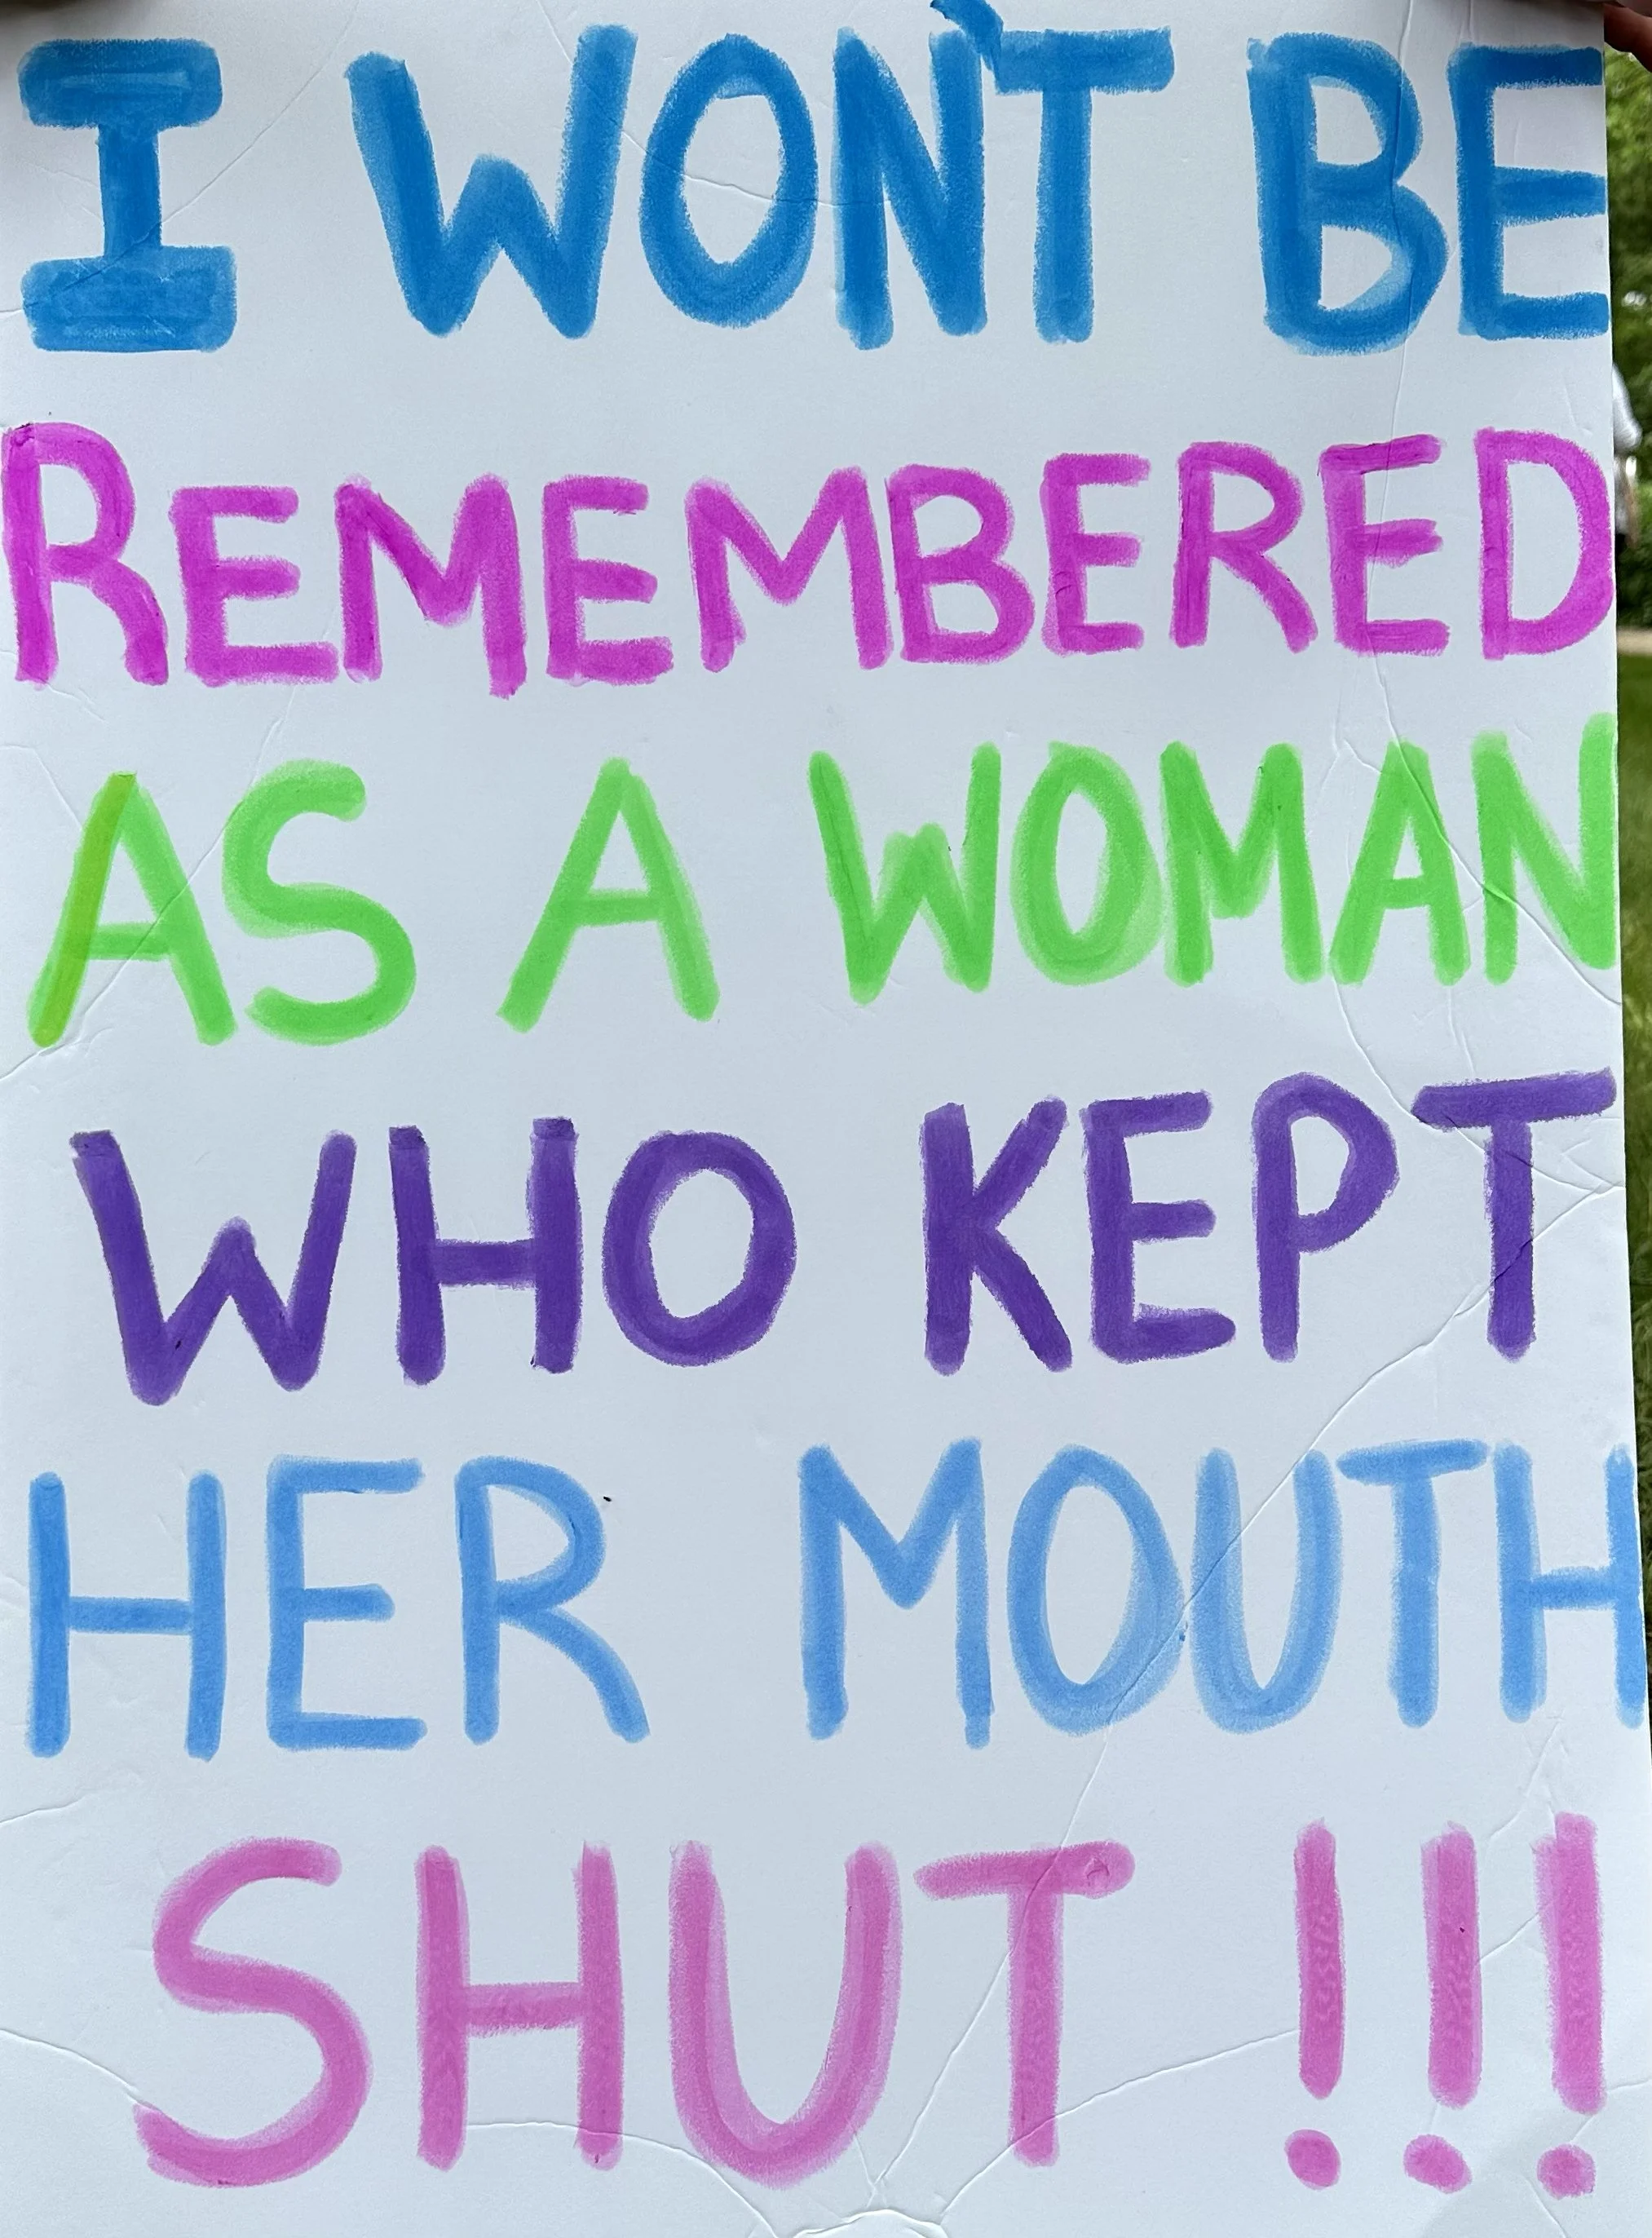 I WON'T BE
REMEMBERED
AS A WOMAN
WHO KEPT
HER MOUTH
SHUT !!!